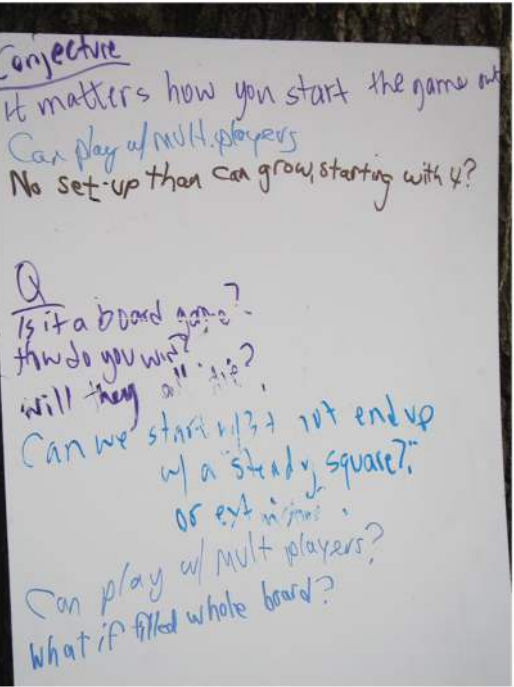 Conjecture
It matters how you start the game out
Can play w/ mult. players
No set-up than can grow, starting with 4?
Q
Is it a board game?
How do you win?
Will they all die?
Can we start w/ 3 + not end up
w/ a "steady square?"
or extinction.
Can play w/ mult players?
What if filled whole board?